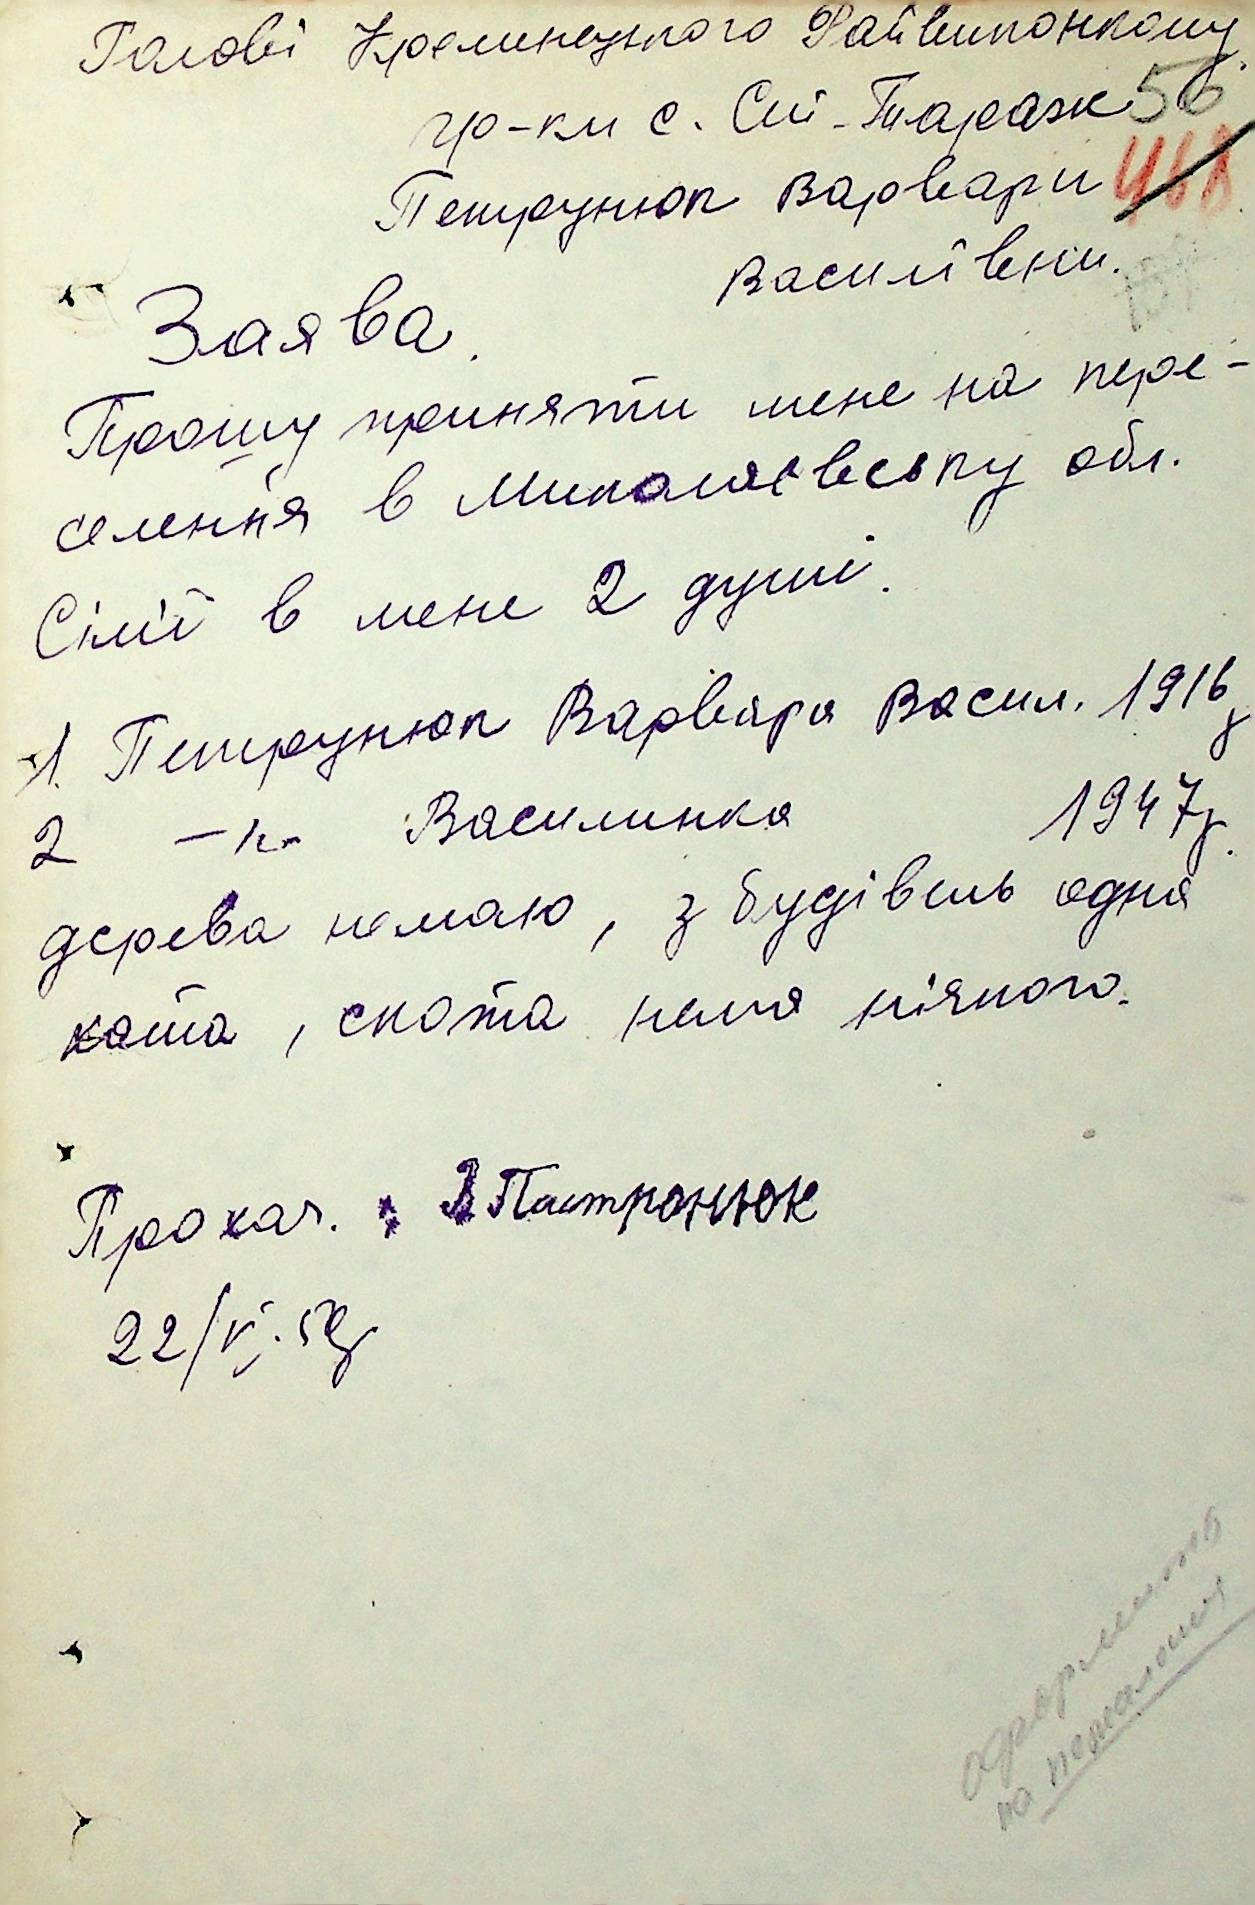 Голові Кременецького Райвиконкому
56
гр-ки с. Ст-Тараж
468
Петрунюк Варвари
Василівни.
Заява.
Прошу приняти мене на пере-
селення в Миколаєвську обл.
Сімї в мене 2 душі.
1. Петрунюк Варвара Васил. 1916р
2 -//- Василинка 1947р.
дерева немаю, з будівель одна
хата, скота нема ніякого.
Прохач. : Пастронюк
22/VI.
оформить
на переселения